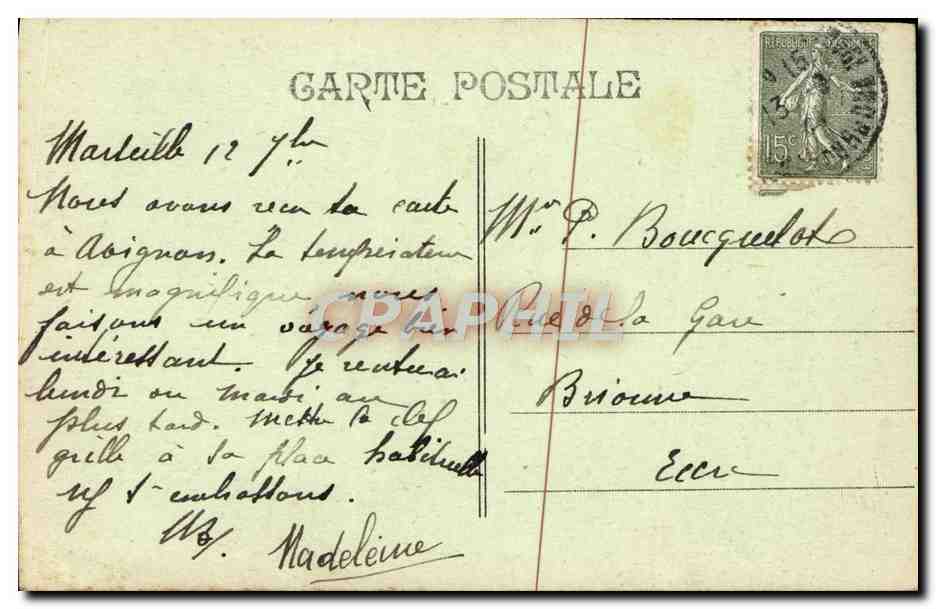 CARTE POSTALE
RÉPUBLIQUE FRANÇAISE
15c
Marseille 12 7bre
Nous avons reçu ta carte
à Avignon. La température
est magnifique nous
faisons un voyage bien
intéressant. Je rentrerai
lundi ou mardi au
plus tard. Mettre la clef
grille à sa place habituelle
Ns t'embrassons.
Madeleine
Mr P. Boucquelot
Rue de la Gare
Brionne
Eure
CPAPHIL